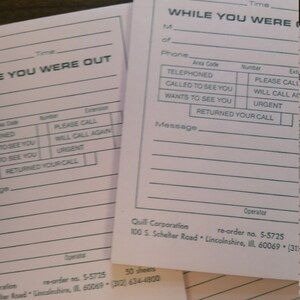 Time
WHILE YOU WERE O
M
of
Phone
Area Code Number Extension
TELEPHONED PLEASE CALL
CALLED TO SEE YOU WILL CALL
WANTS TO SEE YOU URGENT
RETURNED YOUR CALL
Message
Operator
Quill Corporation re-order no. S-5725
100 S. Schelter Road • Lincolnshire, Ill. 60069 • (31
Time
E YOU WERE OUT
Area Code Number Extension
NED PLEASE CALL
TO SEE YOU WILL CALL AGAIN
O SEE YOU URGENT
RETURNED YOUR CALL
age
Operator
oration re-order no. S-5725
Road • Lincolnshire, Ill. 60069 • (312) 634-4800
50 sheets